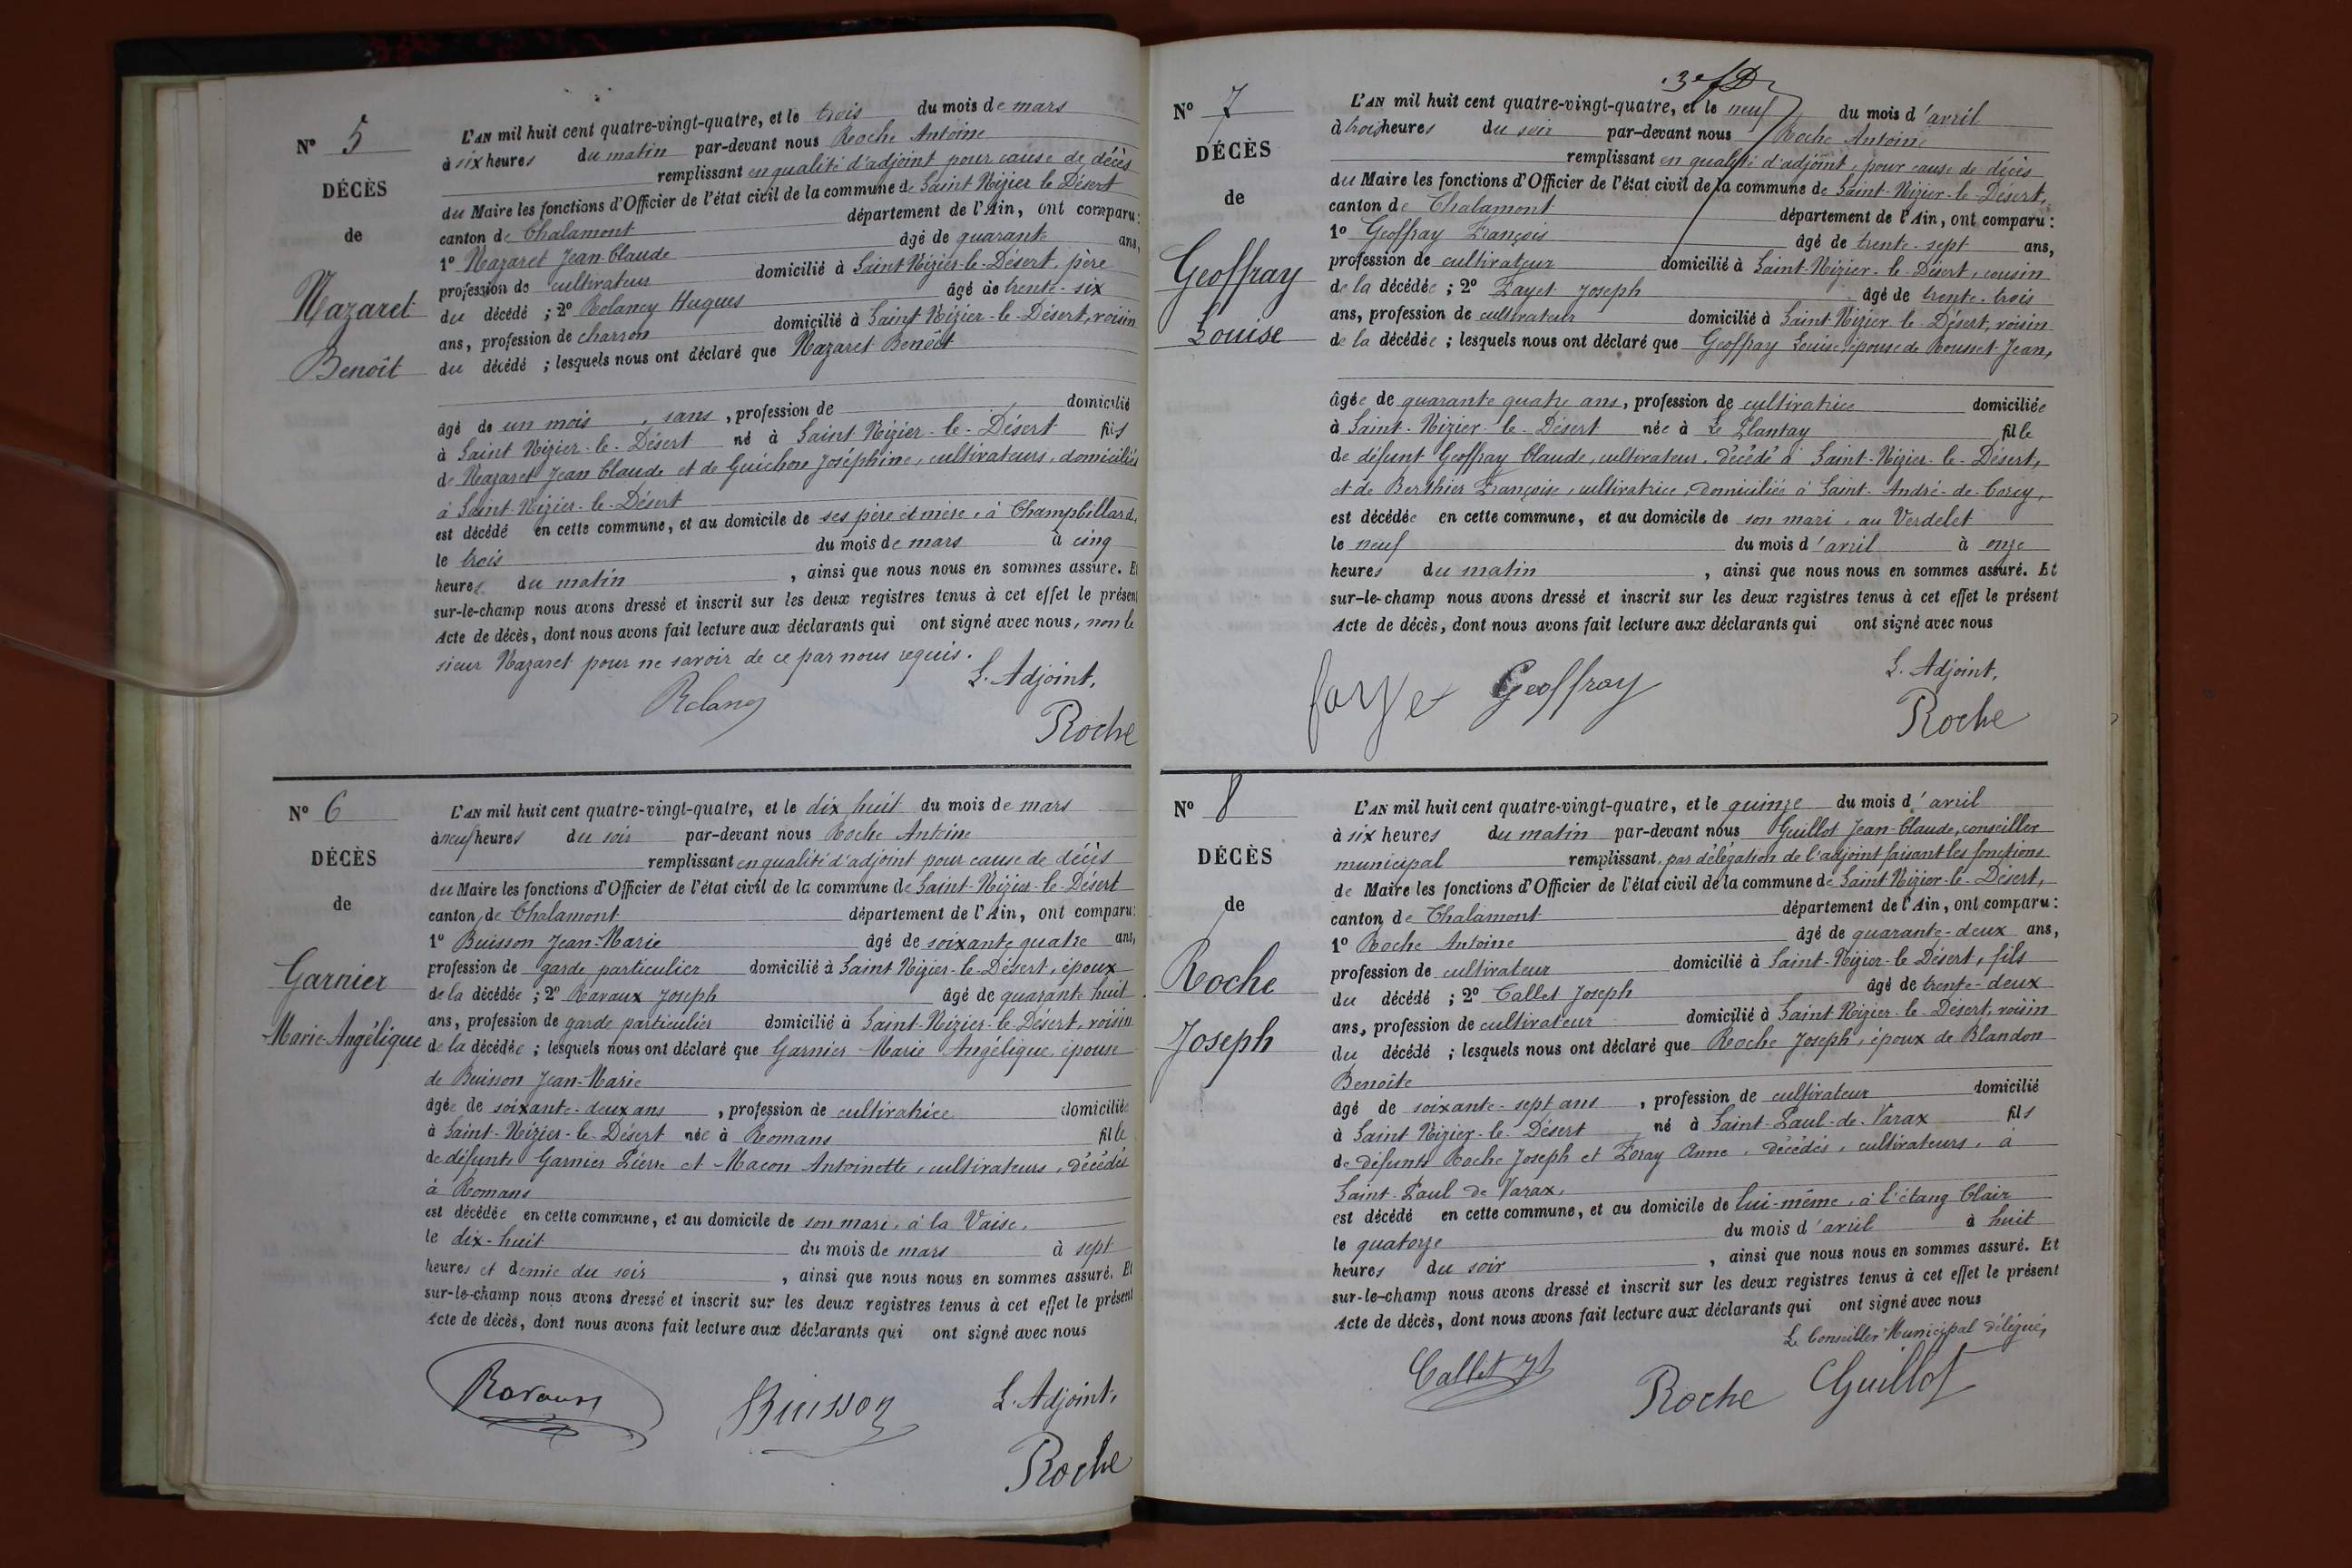 Nº 5
DÉCÈS
de
Nazaret
Benoît
L'AN mil huit cent quatre-vingt-quatre, et le trois du mois de mars
à six heures du matin par-devant nous Roche Antoine
remplissant en qualité d'adjoint pour cause de décès
du Maire les fonctions d'Officier de l'état civil de la commune de Saint Nizier le Désert
canton de Chalamont département de l'Ain, ont comparu:
1º Nazaret Jean-Claude âgé de quarante ans,
profession de cultivateur domicilié à Saint Nizier-le-Désert, père
du décédé ; 2º Rolancy Hugues âgé de trente-six
ans, profession de charron domicilié à Saint Nizier-le-Désert, voisin
du décédé ; lesquels nous ont déclaré que Nazaret Benoît
âgé de un mois, sans, profession de domicilié
à Saint Nizier-le-Désert né à Saint Nizier-le-Désert fils
de Nazaret Jean Claude et de Guichon Joséphine, cultivateurs, domiciliés
à Saint-Nizier-le-Désert
est décédé en cette commune, et au domicile de ses père et mère, à Champbillard,
le trois du mois de mars à cinq
heures du matin, ainsi que nous nous en sommes assuré. Et
sur-le-champ nous avons dressé et inscrit sur les deux registres tenus à cet effet le présent
Acte de décès, dont nous avons fait lecture aux déclarants qui ont signé avec nous, non le
sieur Nazaret pour ne savoir de ce par nous requis.
L. Adjoint,
Roche
Nº 6
DÉCÈS
de
Garnier
Marie-Angélique
L'AN mil huit cent quatre-vingt-quatre, et le dix huit du mois de mars
à neuf heures du soir par-devant nous Roche Antoine
remplissant en qualité d'adjoint pour cause de décès
du Maire les fonctions d'Officier de l'état civil de la commune de Saint-Nizier-le-Désert
canton de Chalamont département de l'Ain, ont comparu:
1º Buisson Jean-Marie âgé de soixante quatre ans,
profession de garde particulier domicilié à Saint Nizier-le-Désert, époux
de la décédée ; 2º Ravaux Joseph âgé de quarante huit
ans, profession de garde particulier domicilié à Saint-Nizier-le-Désert, voisin
de la décédée ; lesquels nous ont déclaré que Garnier Marie Angélique, épouse
de Buisson Jean-Marie
âgée de soixante-deux ans, profession de cultivatrice domiciliée
à Saint-Nizier-le-Désert née à Romans fille
de défunts Garnier Pierre et Macon Antoinette, cultivateurs, décédés
à Romans
est décédée en cette commune, et au domicile de son mari, à la Vaise,
le dix-huit du mois de mars à sept
heures et demie du soir, ainsi que nous nous en sommes assuré. Et
sur-le-champ nous avons dressé et inscrit sur les deux registres tenus à cet effet le présent
Acte de décès, dont nous avons fait lecture aux déclarants qui ont signé avec nous
L. Adjoint,
Ravaux Buisson
Roche
Nº 7
DÉCÈS
de
Geoffray
Louise
L'AN mil huit cent quatre-vingt-quatre, et le neuf du mois d'avril
à trois heures du soir par-devant nous Roche Antoine
remplissant en qualité d'adjoint, pour cause de décès
du Maire les fonctions d'Officier de l'état civil de la commune de Saint-Nizier-le-Désert,
canton de Chalamont département de l'Ain, ont comparu:
1º Geoffray François âgé de trente-sept ans,
profession de cultivateur domicilié à Saint-Nizier-le-Désert, cousin
de la décédée ; 2º Fayet Joseph âgé de trente-trois
ans, profession de cultivateur domicilié à Saint Nizier le Désert, voisin
de la décédée ; lesquels nous ont déclaré que Geoffray Louise épouse de Rousset Jean,
âgée de quarante quatre ans, profession de cultivatrice domiciliée
à Saint-Nizier-le-Désert née à Le Plantay fille
de défunt Geoffray Claude, cultivateur, décédé à Saint-Nizier-le-Désert,
et de Berthier Françoise, cultivatrice, domiciliée à Saint-André-de-Corcy,
est décédée en cette commune, et au domicile de son mari, au Verdelet
le neuf du mois d'avril à onze
heures du matin, ainsi que nous nous en sommes assuré. Et
sur-le-champ nous avons dressé et inscrit sur les deux registres tenus à cet effet le présent
Acte de décès, dont nous avons fait lecture aux déclarants qui ont signé avec nous
L. Adjoint,
fayet Geoffray Roche
Nº 8
DÉCÈS
de
Roche
Joseph
L'AN mil huit cent quatre-vingt-quatre, et le quinze du mois d'avril
à six heures du matin par-devant nous Guillot Jean-Claude, conseiller
municipal remplissant, par délégation de l'adjoint faisant les fonctions
de Maire les fonctions d'Officier de l'état civil de la commune de Saint Nizier-le-Désert,
canton de Chalamont département de l'Ain, ont comparu:
1º Roche Antoine âgé de quarante-deux ans,
profession de cultivateur domicilié à Saint-Nizier-le Désert, fils
du décédé ; 2º Callet Joseph âgé de trente-deux
ans, profession de cultivateur domicilié à Saint Nizier-le-Désert, voisin
du décédé ; lesquels nous ont déclaré que Roche Joseph, époux de Blandon
Benoîte
âgé de soixante-sept ans, profession de cultivateur domicilié
à Saint Nizier-le-Désert né à Saint-Paul-de-Varax fils
de défunts Roche Joseph et Foray Anne, décédés, cultivateurs, à
Saint-Paul de Varax,
est décédé en cette commune, et au domicile de lui-même, à l'étang Clair
le quatorze du mois d'avril à huit
heures du soir, ainsi que nous nous en sommes assuré. Et
sur-le-champ nous avons dressé et inscrit sur les deux registres tenus à cet effet le présent
Acte de décès, dont nous avons fait lecture aux déclarants qui ont signé avec nous
Le Conseiller Municipal délégué,
Callet Roche Guillot